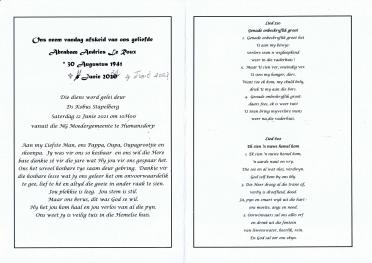 Ons neem vandag afskeid van ons geliefde
Abraham Andries Le Roux
* 30 Augustus 1941
Junie 2021
Die diens word gelei deur
Ds Kobus Stapelberg
Saterdag 12 Junie 2021 om 10H00
vanuit die NG Moedergemeente te Humansdorp
Aan my Liefste Man, ons Pappa, Oupa, Oupagrootjie en
skoonpa. Jy was vir ons so kosbaar en ons wil die Here
baie dankie sê vir die jare wat Hy jou vir ons gespaar het.
Ons het soveel kosbare tye saam deur gebring. Dankie vir
die kosbare lesse wat jy ons geleer het om onvoorwaardelik
te gee, lief te hê en altyd die goeie in ander raak te sien.
Jou plekkie is leeg. Jou stem is stil.
Maar ons berus, dit was God se wil.
Hy het jou kom haal en jou verlos van al die pyn,
Ons weet jy is veilig tuis in die Hemelse huis.
Lied 210
Genade onbeskryflik groot
1. Genade onbeskryflik groot het
U aan my bewys
verlore seun
weer in die vaderhuis!
2. Maar U sien ver, oneindig ver
U sien my honger, dors,
Want toe ek kom, my skuld bely,
druk U my aan die bors.
4. Genade onbeskryflik groot:
daars fees, ek is weer tuis
U seun terug
word na die vaderhuis.
Lied 602
Ek sien 'n nuwe hemel kom
1. Ek sien 'n nuwe hemel kom,
'n aarde nuut en vry.
The see en al wat skei, verdwyn.
God self kom by ons bly.
2. Die Heer droog af die trane af,
verby is droefheid, dood.
Ja, pyn en smart wyk uit die hart -
ons moeite, angs en nood.
3. Oorwinnaars sal ons alles erf
en drink uit die fontein
van lewenswater, heerlik, rein.
En God sal vir ons skyn.